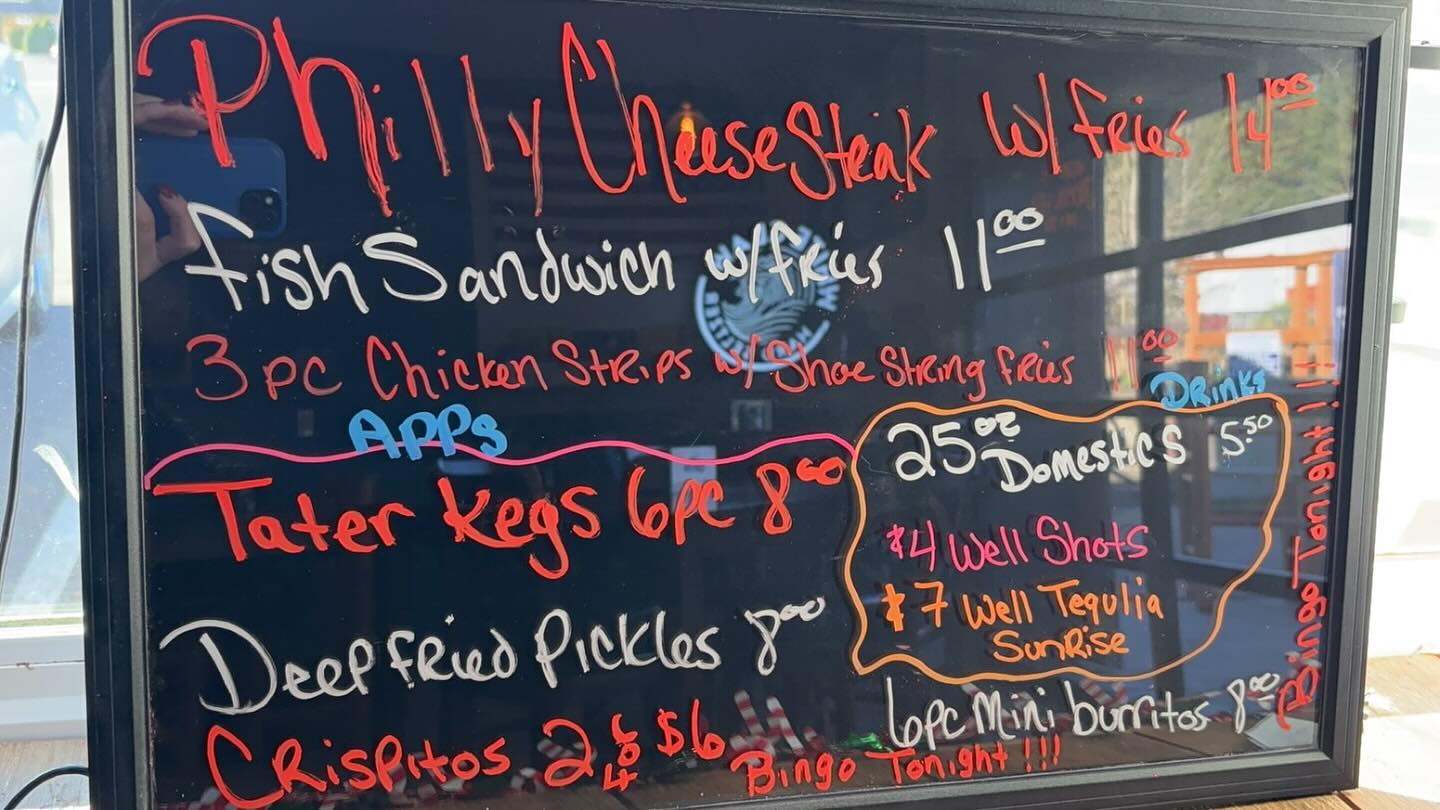 Philly Cheese Steak w/ fries 14.00
Fish Sandwich w/fries 11.00
3 pc Chicken Strips w/ Shoe String fries 11.00
APPs
Drinks
25 oz Domestics 5.50
Tater Kegs 6pc 8.00
$4 Well Shots
$7 Well Tequlia
SunRise
Deep fried Pickles 8.00
6pc Mini burritos 8.00
Crispitos 2 for $6
Bingo Tonight !!!
Bingo Tonight !!!